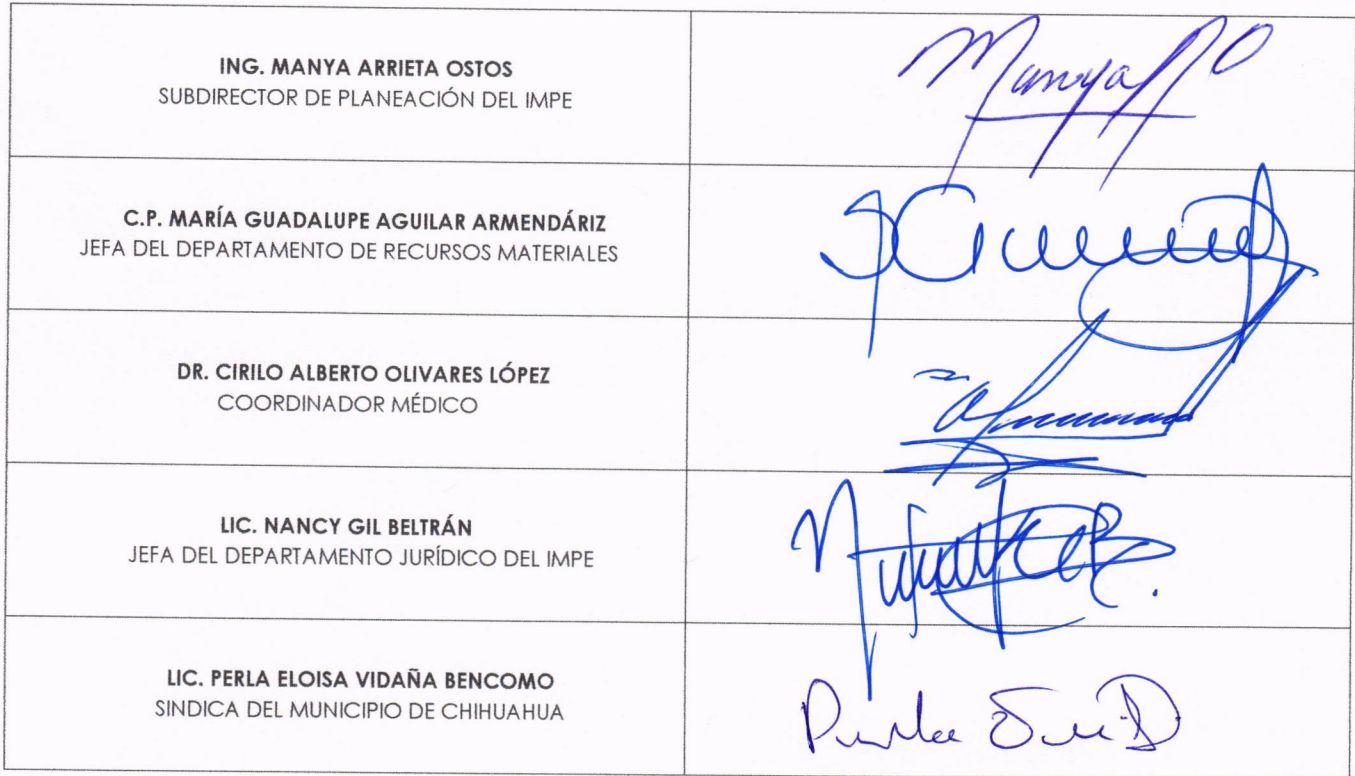 ING. MANYA ARRIETA OSTOS
SUBDIRECTOR DE PLANEACIÓN DEL IMPE
Manya
C.P. MARÍA GUADALUPE AGUILAR ARMENDÁRIZ
JEFA DEL DEPARTAMENTO DE RECURSOS MATERIALES
DR. CIRILO ALBERTO OLIVARES LÓPEZ
COORDINADOR MÉDICO
LIC. NANCY GIL BELTRÁN
JEFA DEL DEPARTAMENTO JURÍDICO DEL IMPE
LIC. PERLA ELOISA VIDAÑA BENCOMO
SINDICA DEL MUNICIPIO DE CHIHUAHUA
Perla